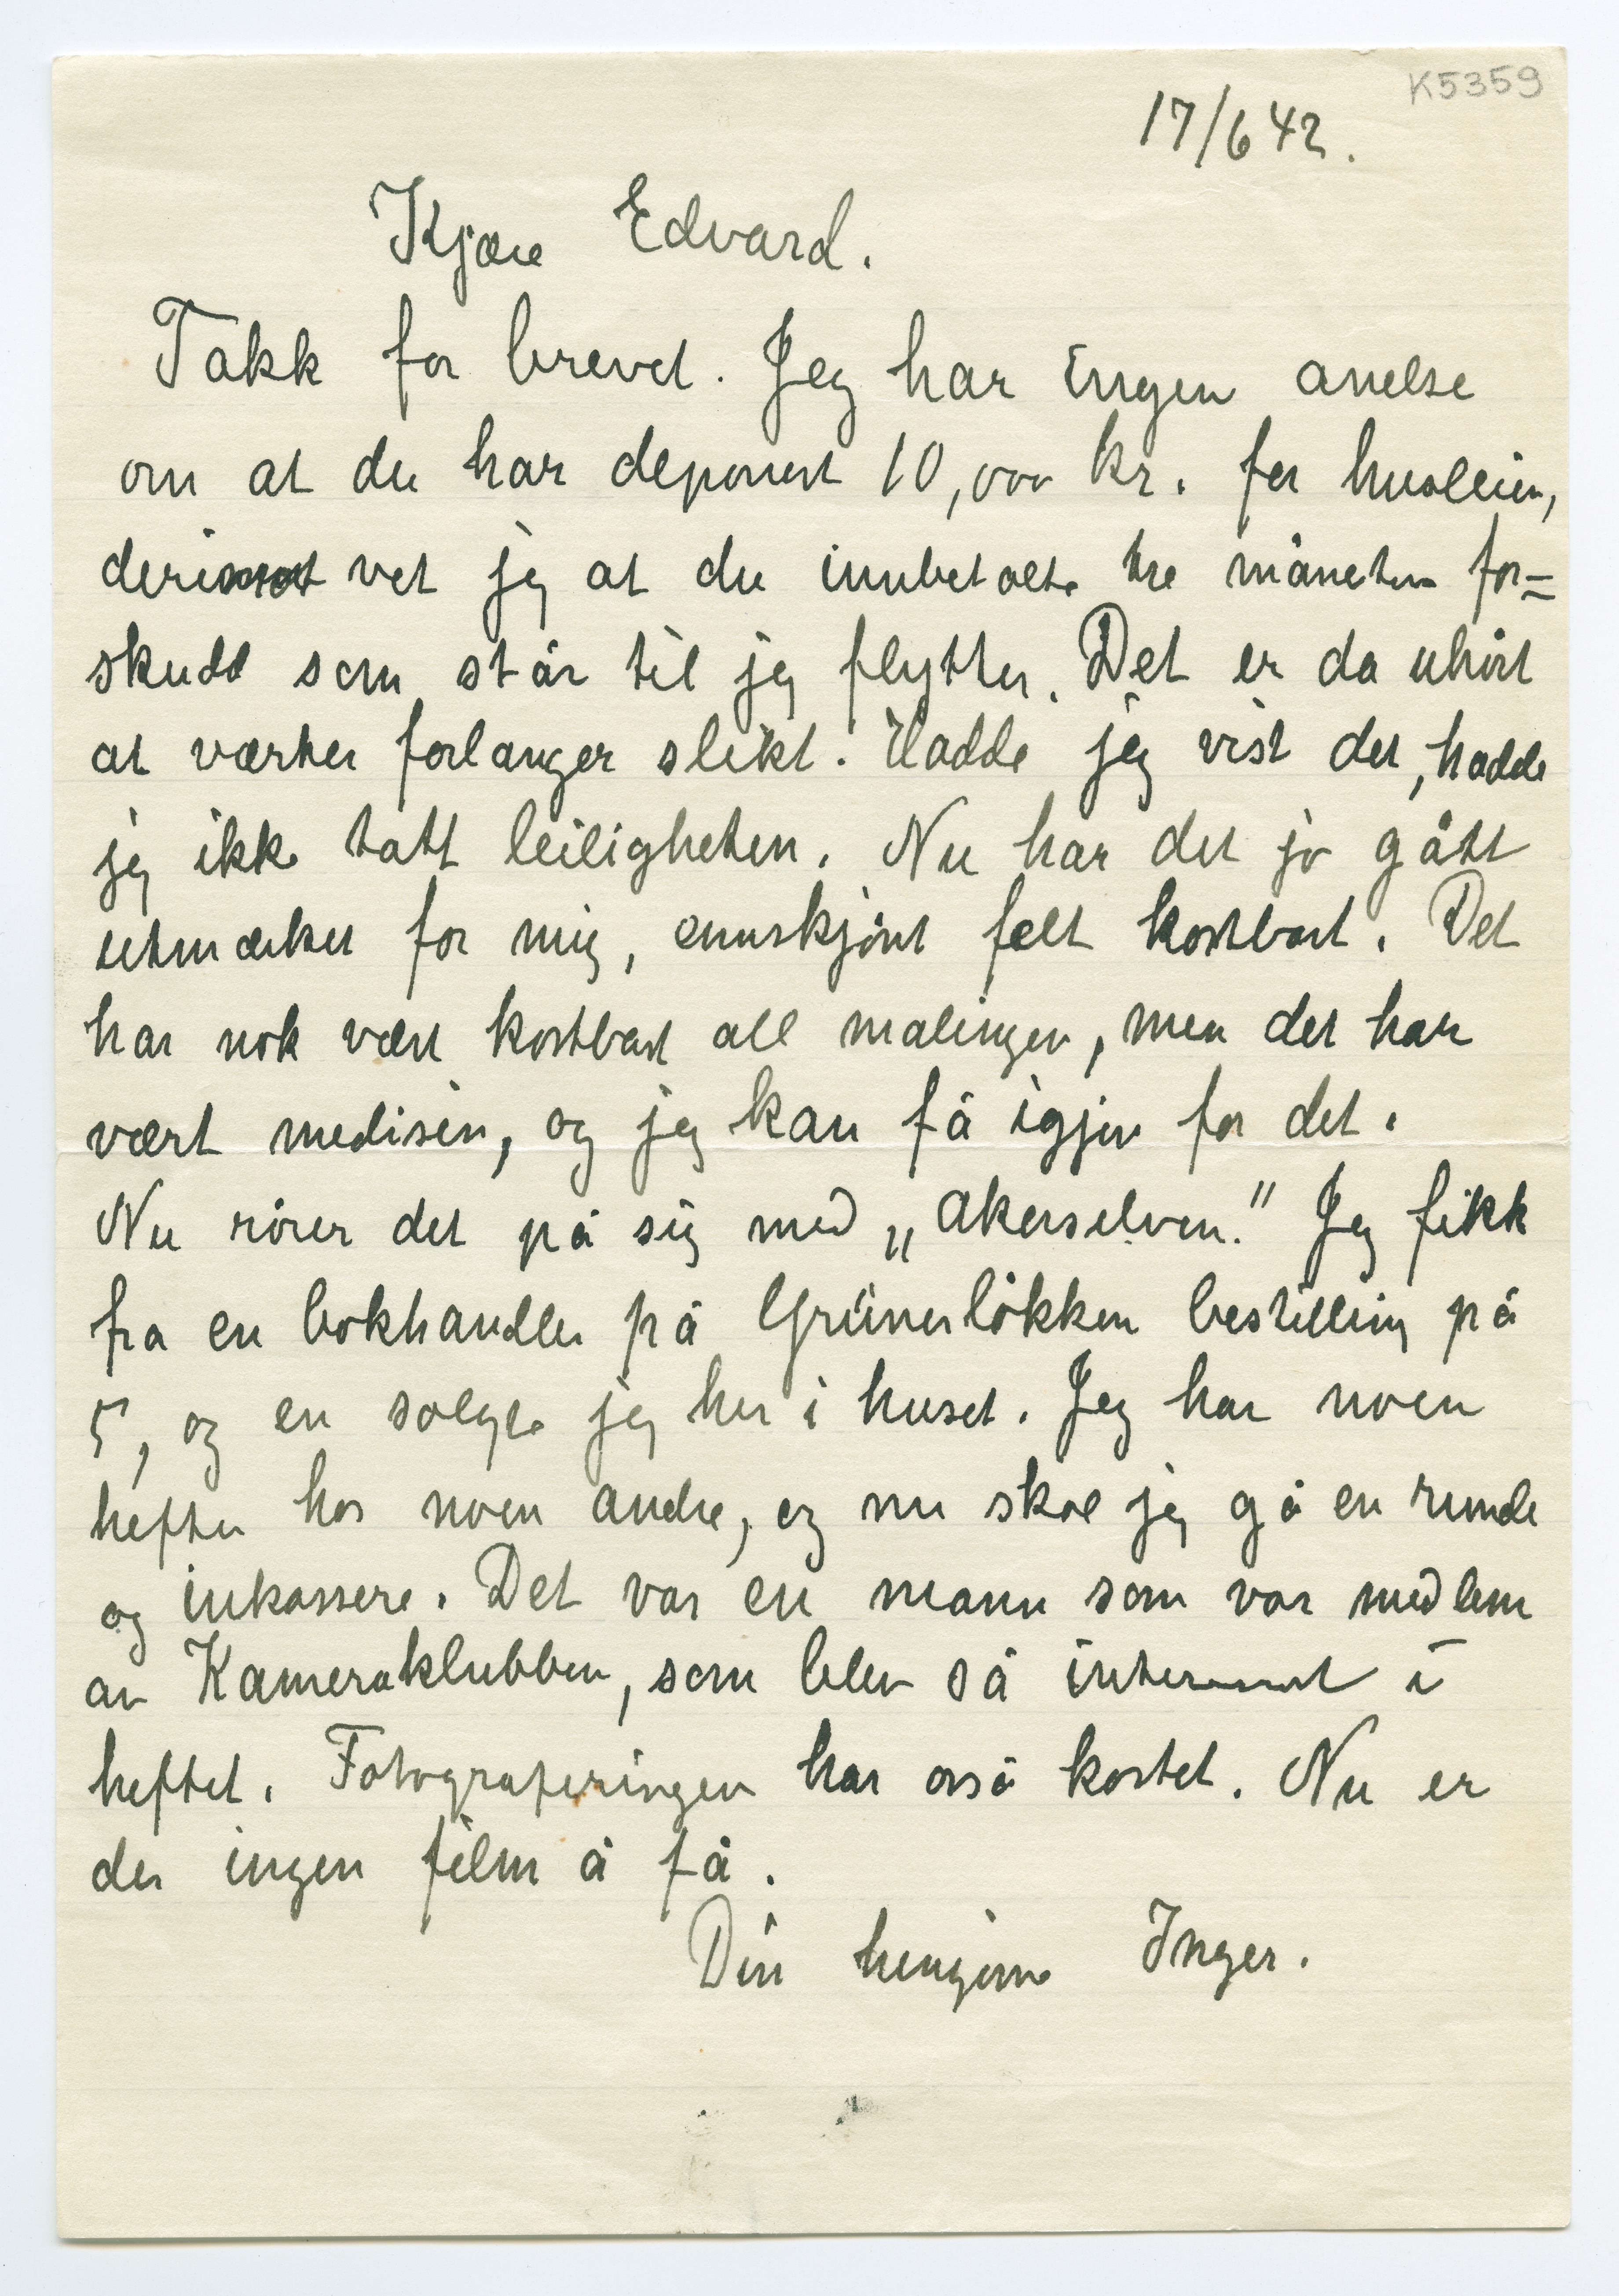 K5359
17/6 42.
Kjære Edvard.
Takk for brevet. Jeg har ingen anelse
om at du har deponert 10,000 kr. for husleien,
derimot vet jeg at du innbetalte tre måneters for=
skudd som står til jeg flytter. Det er da uhørt
at værter forlanger slikt. Hadde jeg vist det, hadde
jeg ikke tatt leiligheten. Nu har det jo gått
utmærket for mig, ennskjønt felt kostbart. Det
har nok vært kostbart all malingen, men det har
vært medisin, og jeg kan få igjen for det.
Nu rører det på sig med „Akerselven." Jeg fikk
fra en bokhandler på Grünerløkken bestilling på
5, og en solgte jeg her i huset. Jeg har noen
hefter hos noen andre, og nu skal jeg gå en runde
og inkassere. Det var en mann som var medlem
av Kameraklubben, som blev så interessert i
heftet. Fotograferingen har også kostet. Nu er
der ingen film å få.
Din hengivne Inger.